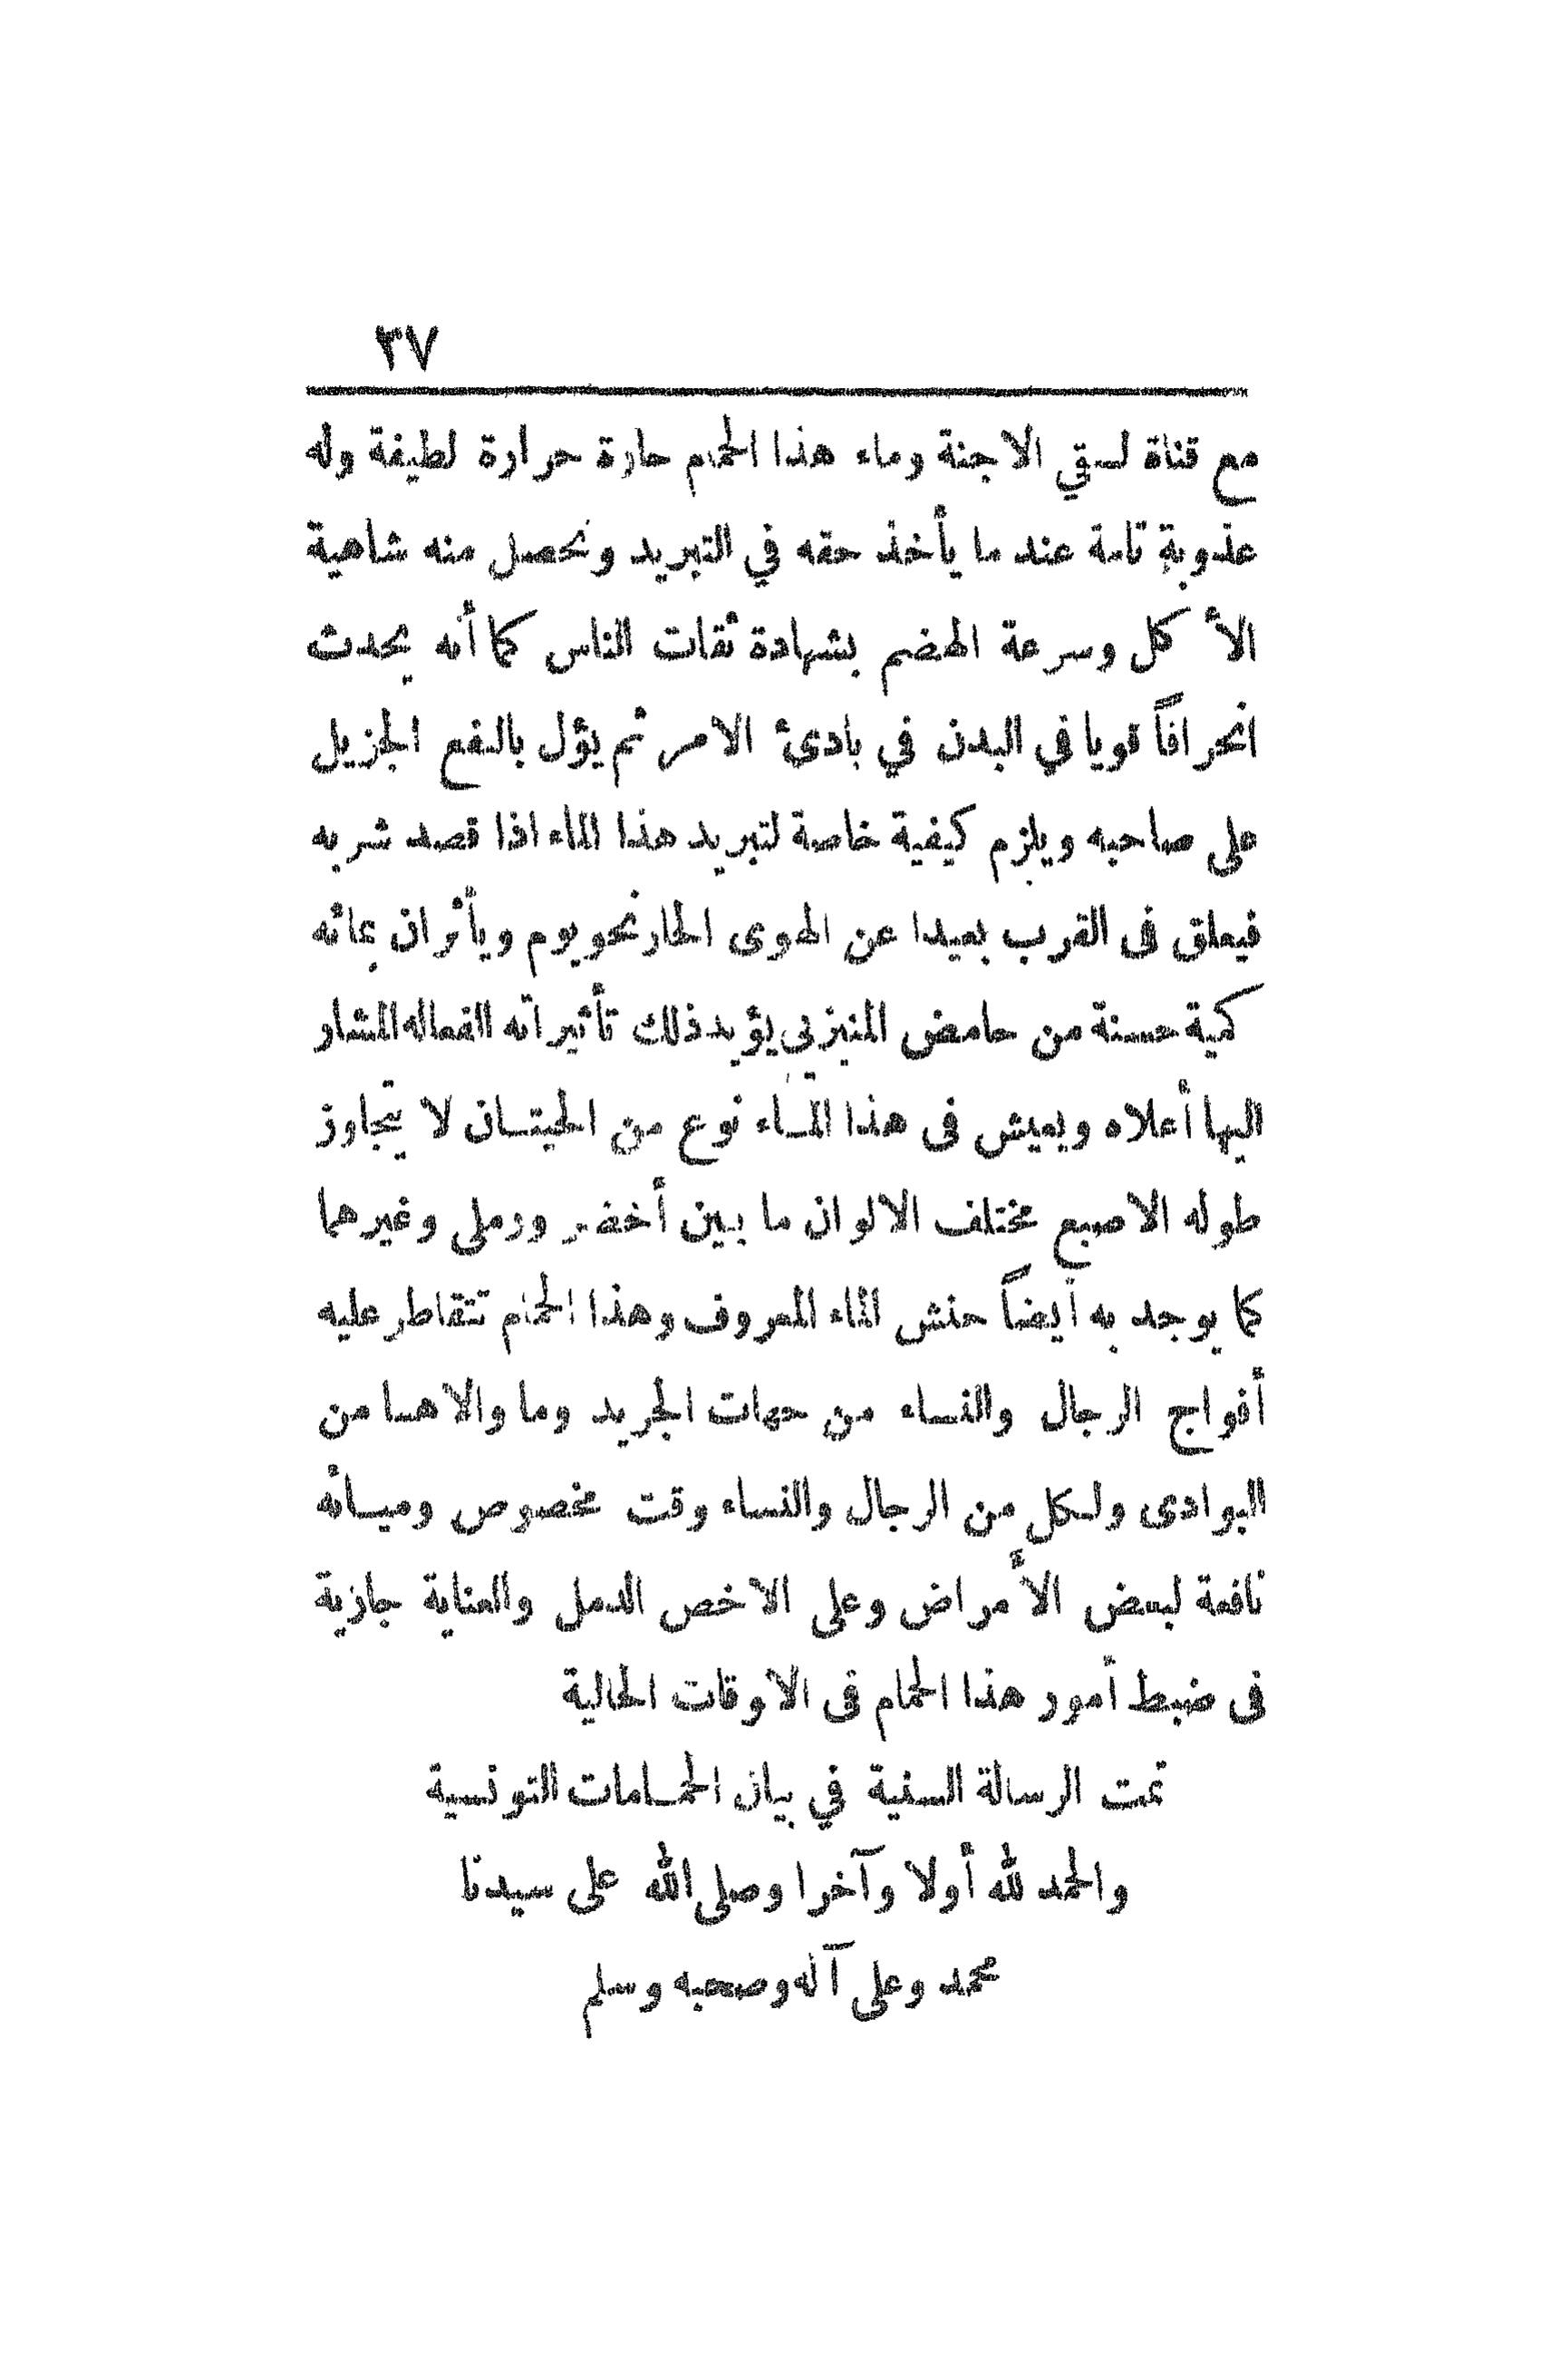 ٣٧
مع قناة لسقي الاجنة وماء هذا الحمام حارة حرارة لطيفة وله
عذوبة تامة عند ما يأخذ حقه في التبريد ونحصل منه شاهية
الأ كل وسرعة الهضم بشهادة ثقات الناس كما أنه يحدث
انحرافاً قويا في البدن في بادئ الامر ثم يؤل بالنفع الجزيل
على صاحبه ويلزم كيفية خاصة لتبريد هذا الماء اذا قصد شربه
فيعلق فى القرب بعيدا عن الهوى الحار نحو يوم ويأثر ان بمائه
كمية حسنة من حامض المنيزي يؤيد ذلك تأثيراته الفعاله المشار
اليها أعلاه ويعيش فى هذا المـاء نوع من الحيتـان لا يتجاوز
طوله الاصبع مختلف الالوان ما بين أخضر ورملي وغيرهما
كما يوجد به أيضاً حنش الماء المعروف وهذا الحمام تتقاطر عليه
أفواج الرجال والنساء من جهات الجريد وما والاهـا من
البوادى ولـكل من الرجال والنساء وقت مخصوص وميـائه
نافعة لبعض الأمراض وعلى الاخص الدمل والعناية جازية
فى ضبط أمور هذا الحمام فى الاوقات الحالية
تمت الرسالة السنية في بيان الحمـامات التونسية
والحمد لله أولا وآخرا وصلى الله على سيدنا
محمد وعلى آله وصحبه وسلم